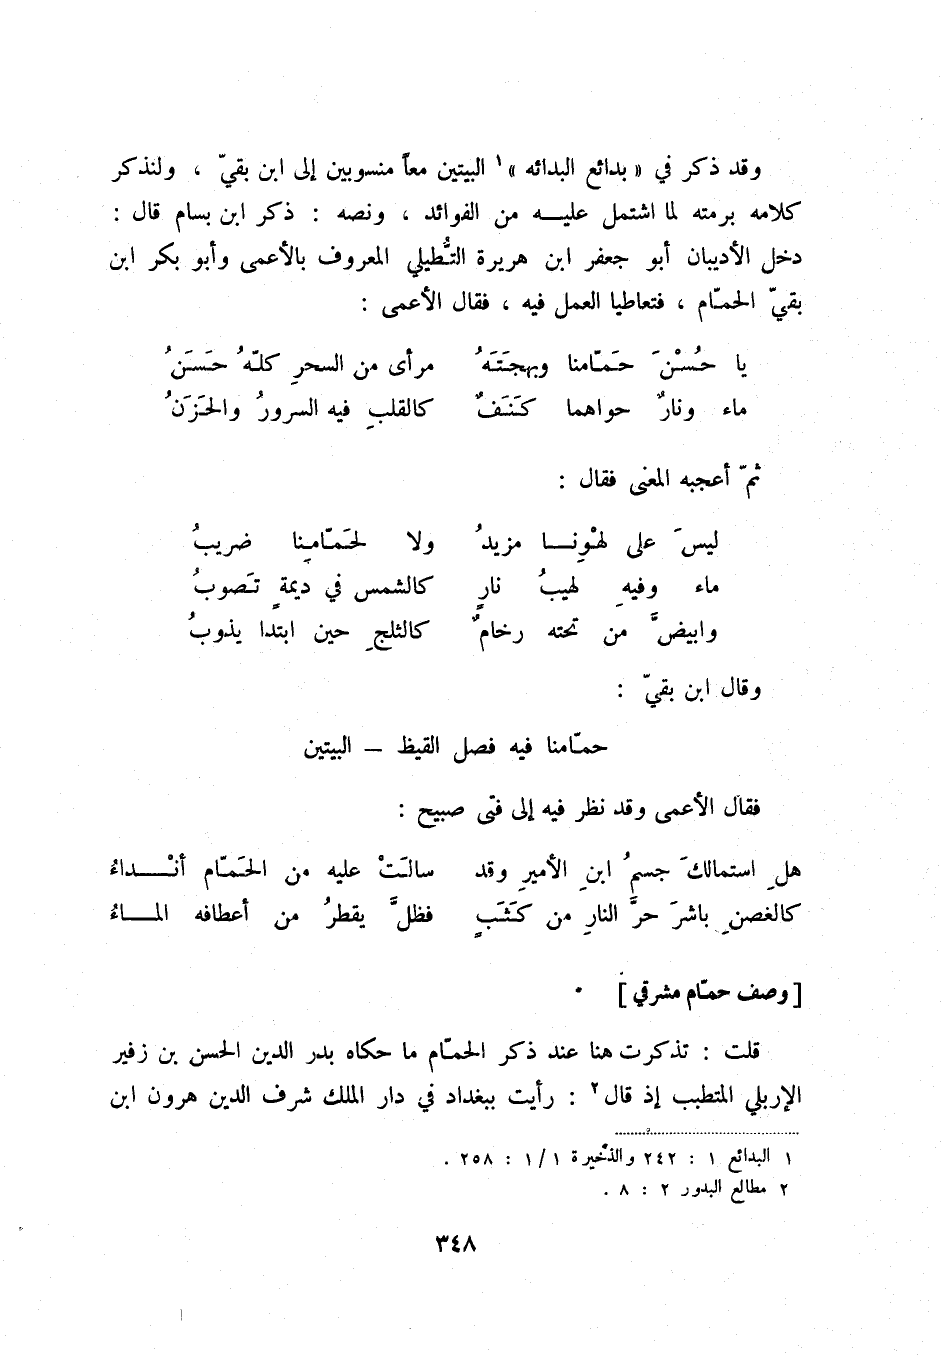 وقد ذكر في « بدائع البدائه »١ البيتين معاً منسوبين إلى ابن بقيّ ، ولنذكر
كلامه برمته لما اشتمل عليـــه من الفوائد ، ونصه : ذكر ابن بسام قال :
دخل الأديبان أبو جعفر ابن هريرة التُّطيلي المعروف بالأعمى وأبو بكر ابن
بقيّ الحمّام ، فتعاطيا العمل فيه ، فقال الأعمى :
يا حُسْنَ حَمّامنا وبهجَتَهُ مرأى من السحرِ كلّهُ حَسَنُ
ماء ونارٌ حواهما كَنَفٌ كالقلبِ فيه السرورُ والحَزَنُ
ثمّ أعجبه المعنى فقال :
ليسَ على لهْوِنـــا مزيدُ ولا لحَمّامِنا ضريبُ
ماء وفيهِ لهيبُ نارٍ كالشمس في ديمةٍ تَصوبُ
وابيضَّ من تحته رخامٌ كالثلجِ حين ابتدا يذوبُ
وقال ابن بقيّ :
حمّامنا فيه فصل القيظ – البيتين
فقال الأعمى وقد نظر فيه إلى فتى صبيح :
هلِ استمالكَ جسمُ ابنِ الأميرِ وقد سالَتْ عليه من الحَمّام أنْـــداءُ
كالغصنِ باشرَ حرَّ النارِ من كَثَبٍ فظلَّ يقطرُ من أعطافه المـــاءُ
[ وصف حمّام مشرقي ]
قلت : تذكرت هنا عند ذكر الحمّام ما حكاه بدر الدين الحسن بن زفير
الإربلي المتطبب إذ قال٢ : رأيت ببغداد في دار الملك شرف الدين هرون ابن
١ البدائع ١ : ٢٤٢ والذخيرة ١/١ : ٢٥٨ .
٢ مطالع البدور ٢ : ٨ .
٣٤٨